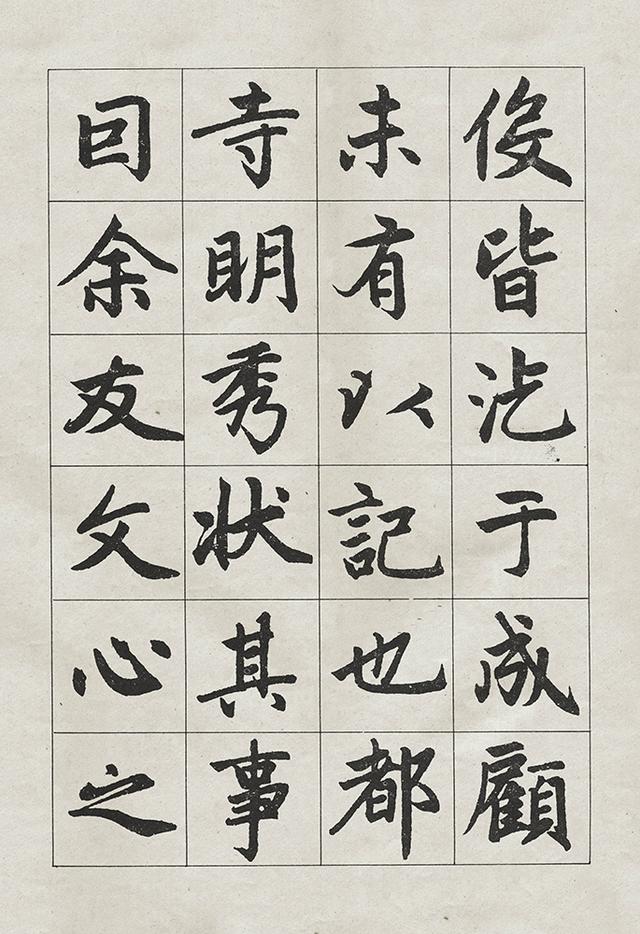 俊皆迄于成顧
未有以記也都
寺明秀狀其事
囙余友文心之